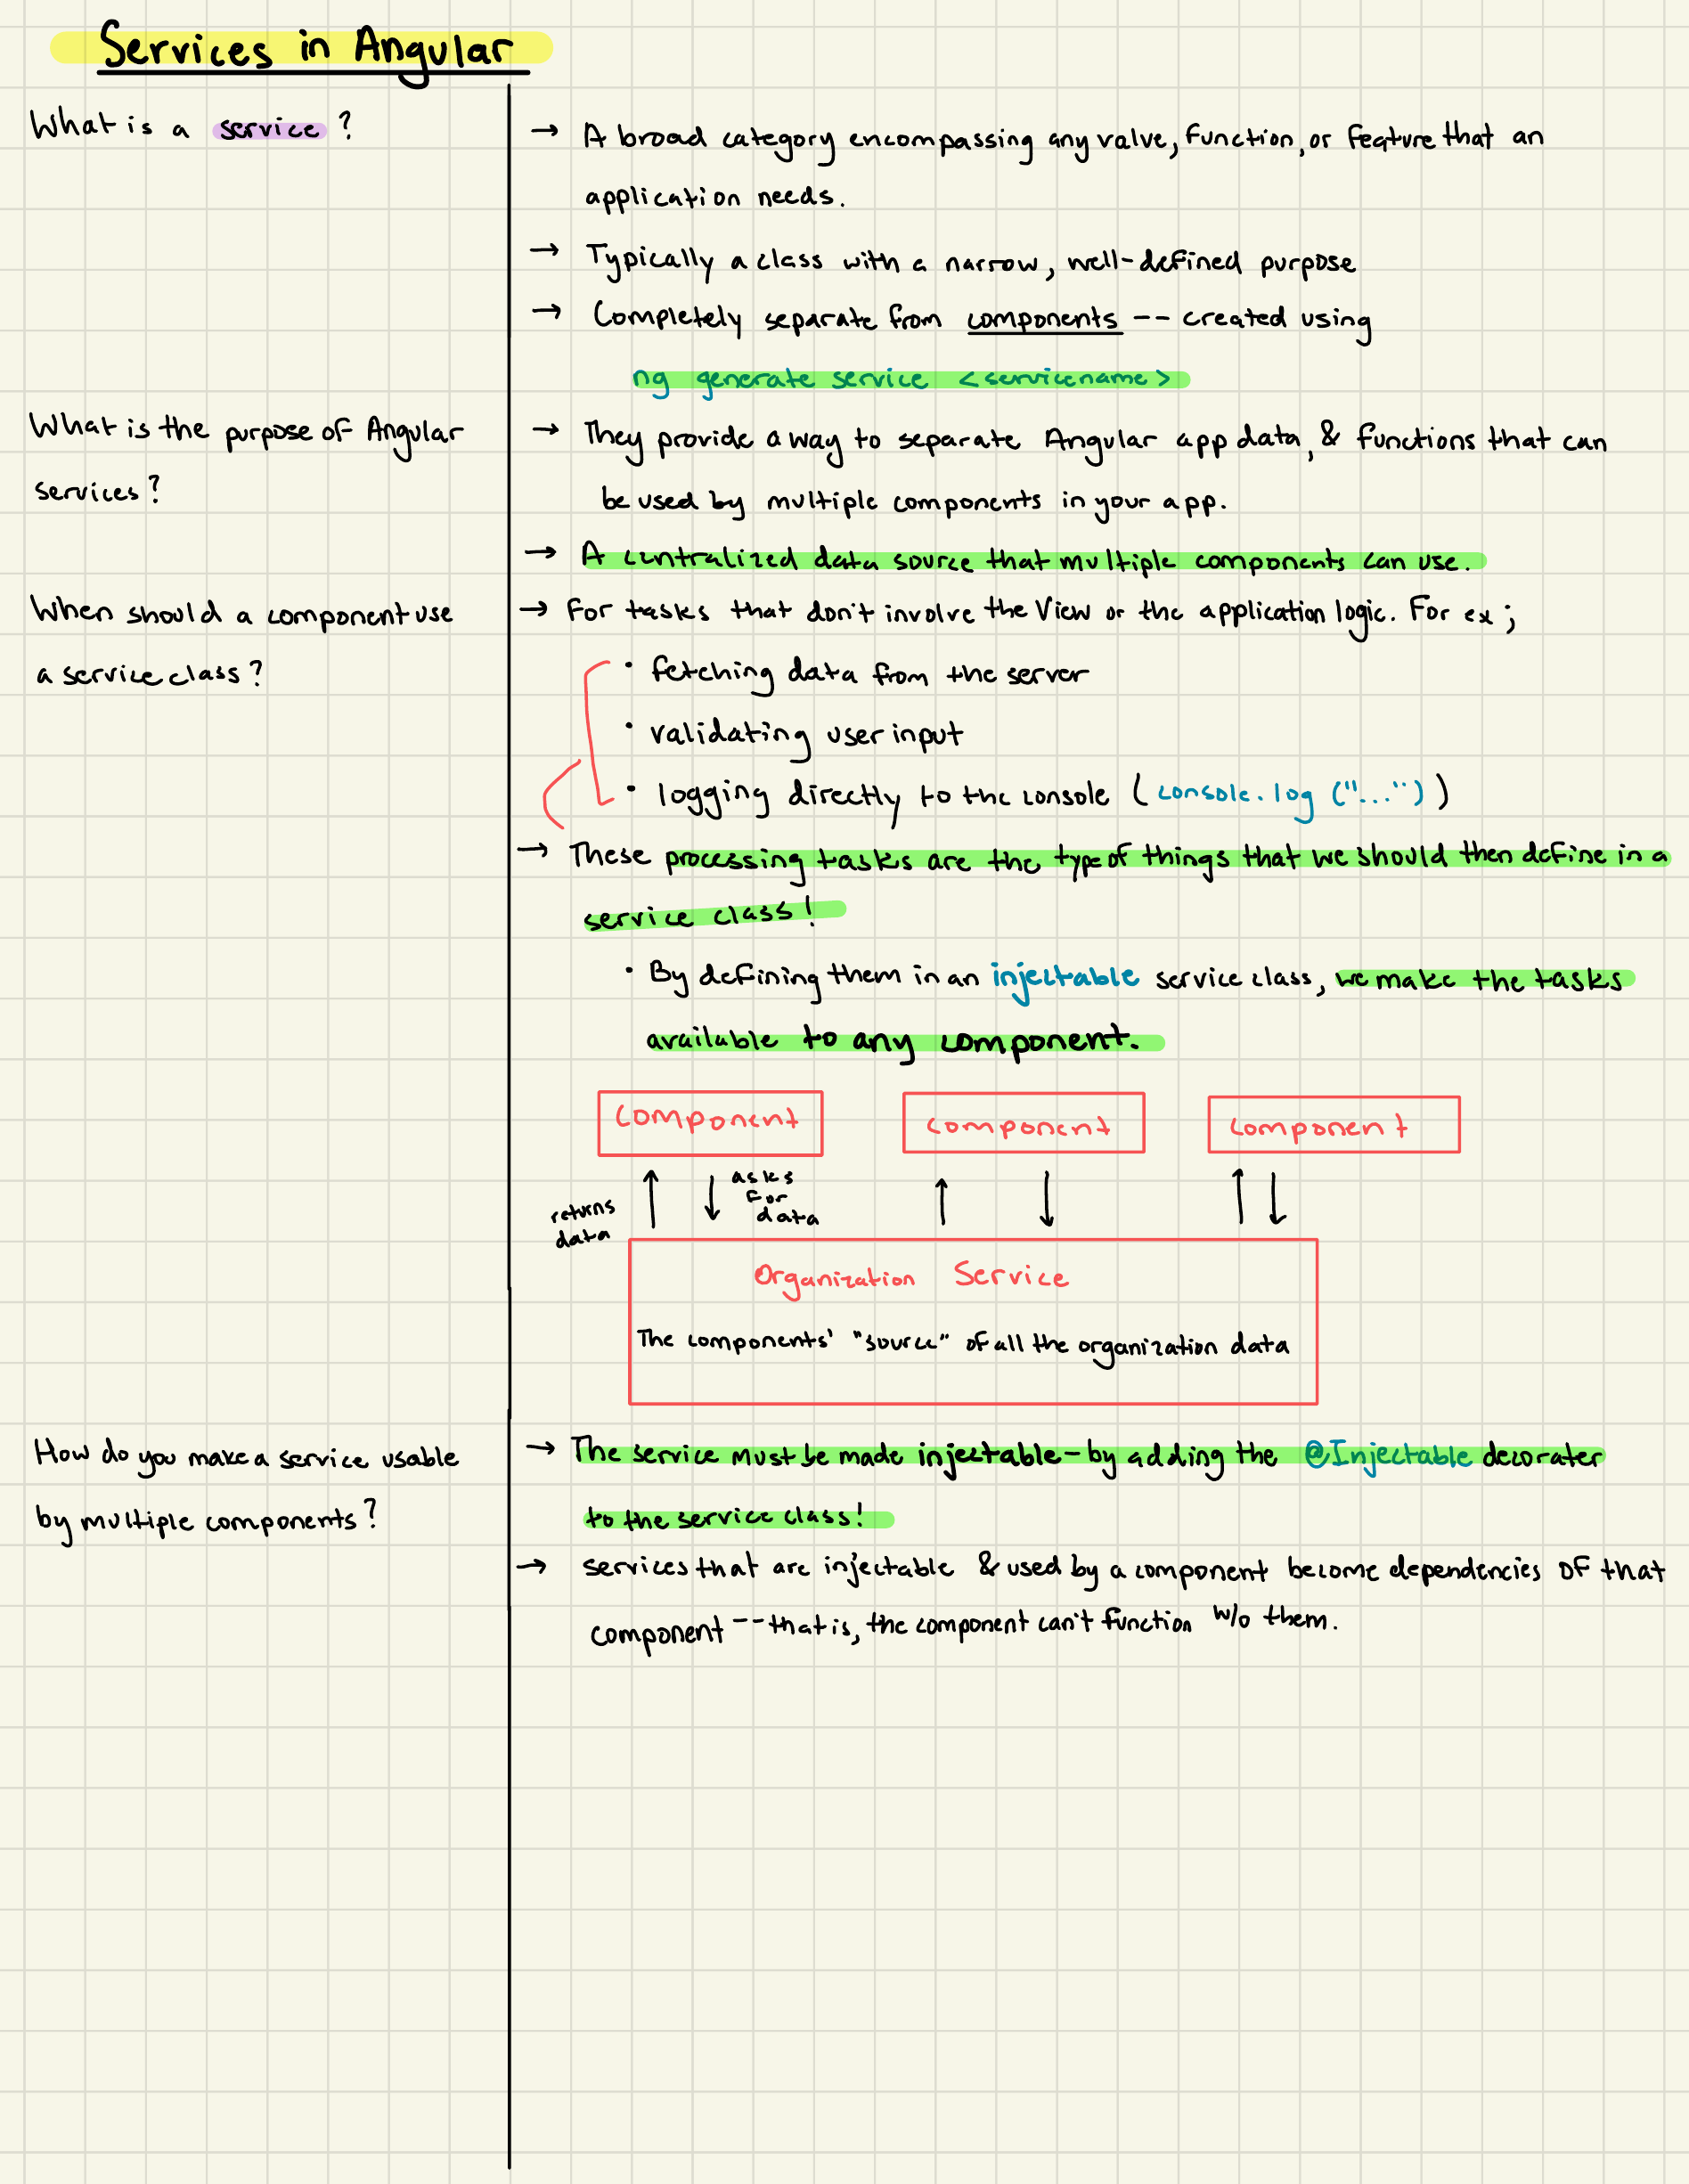 Services in Angular
What is a service?
→ A broad category encompassing any value, function, or feature that an
application needs.
→ Typically a class with a narrow, well-defined purpose
→ Completely separate from components -- created using
ng generate service <servicename>
What is the purpose of Angular
services?
→ They provide a way to separate Angular app data, & functions that can
be used by multiple components in your app.
→ A centralized data source that multiple components can use.
When should a component use
a service class?
→ For tasks that don't involve the View or the application logic. For ex;
• fetching data from the server
• validating user input
• logging directly to the console (console.log ("..."))
→ These processing tasks are the type of things that we should then define in a
service class!
• By defining them in an injectable service class, we make the tasks
available to any component.
Component
component
component
returns
data
asks
for
data
Organization Service
The components' "source" of all the organization data
How do you make a service usable
by multiple components?
→ The service must be made injectable - by adding the @Injectable decorater
to the service class!
→ services that are injectable & used by a component become dependencies of that
component -- that is, the component can't function w/o them.